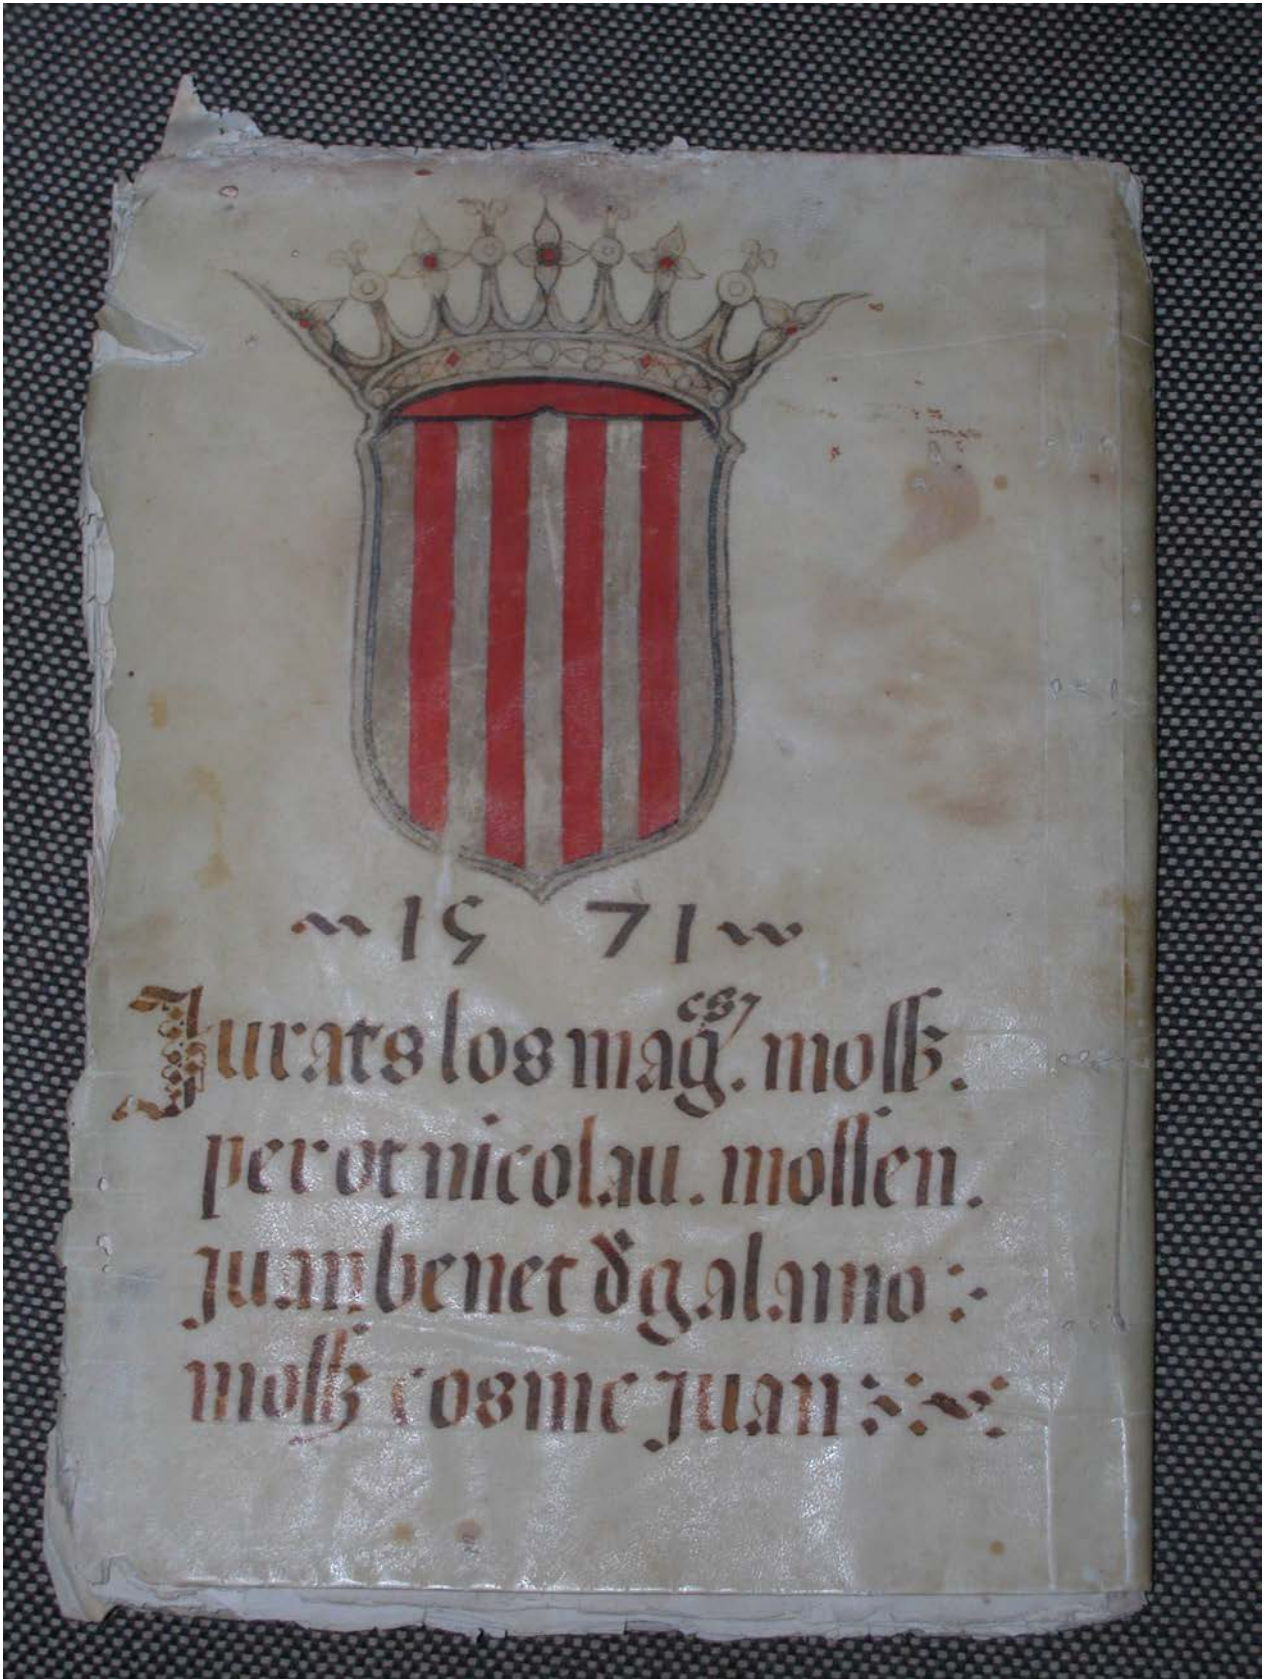 ~ 15 71 ~
Jurats los mag.^cs moss.
perot nicolau. mossen.
juan benet d galamo :
moss cosme juan